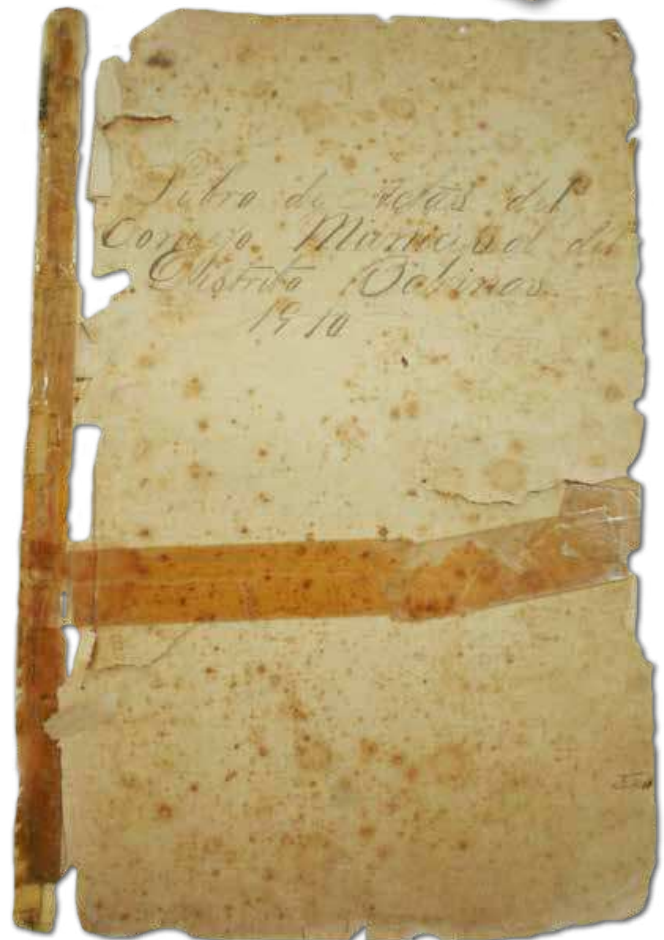 Libro de Actas del
Concejo Municipal del
Distrito Sabinas
1910